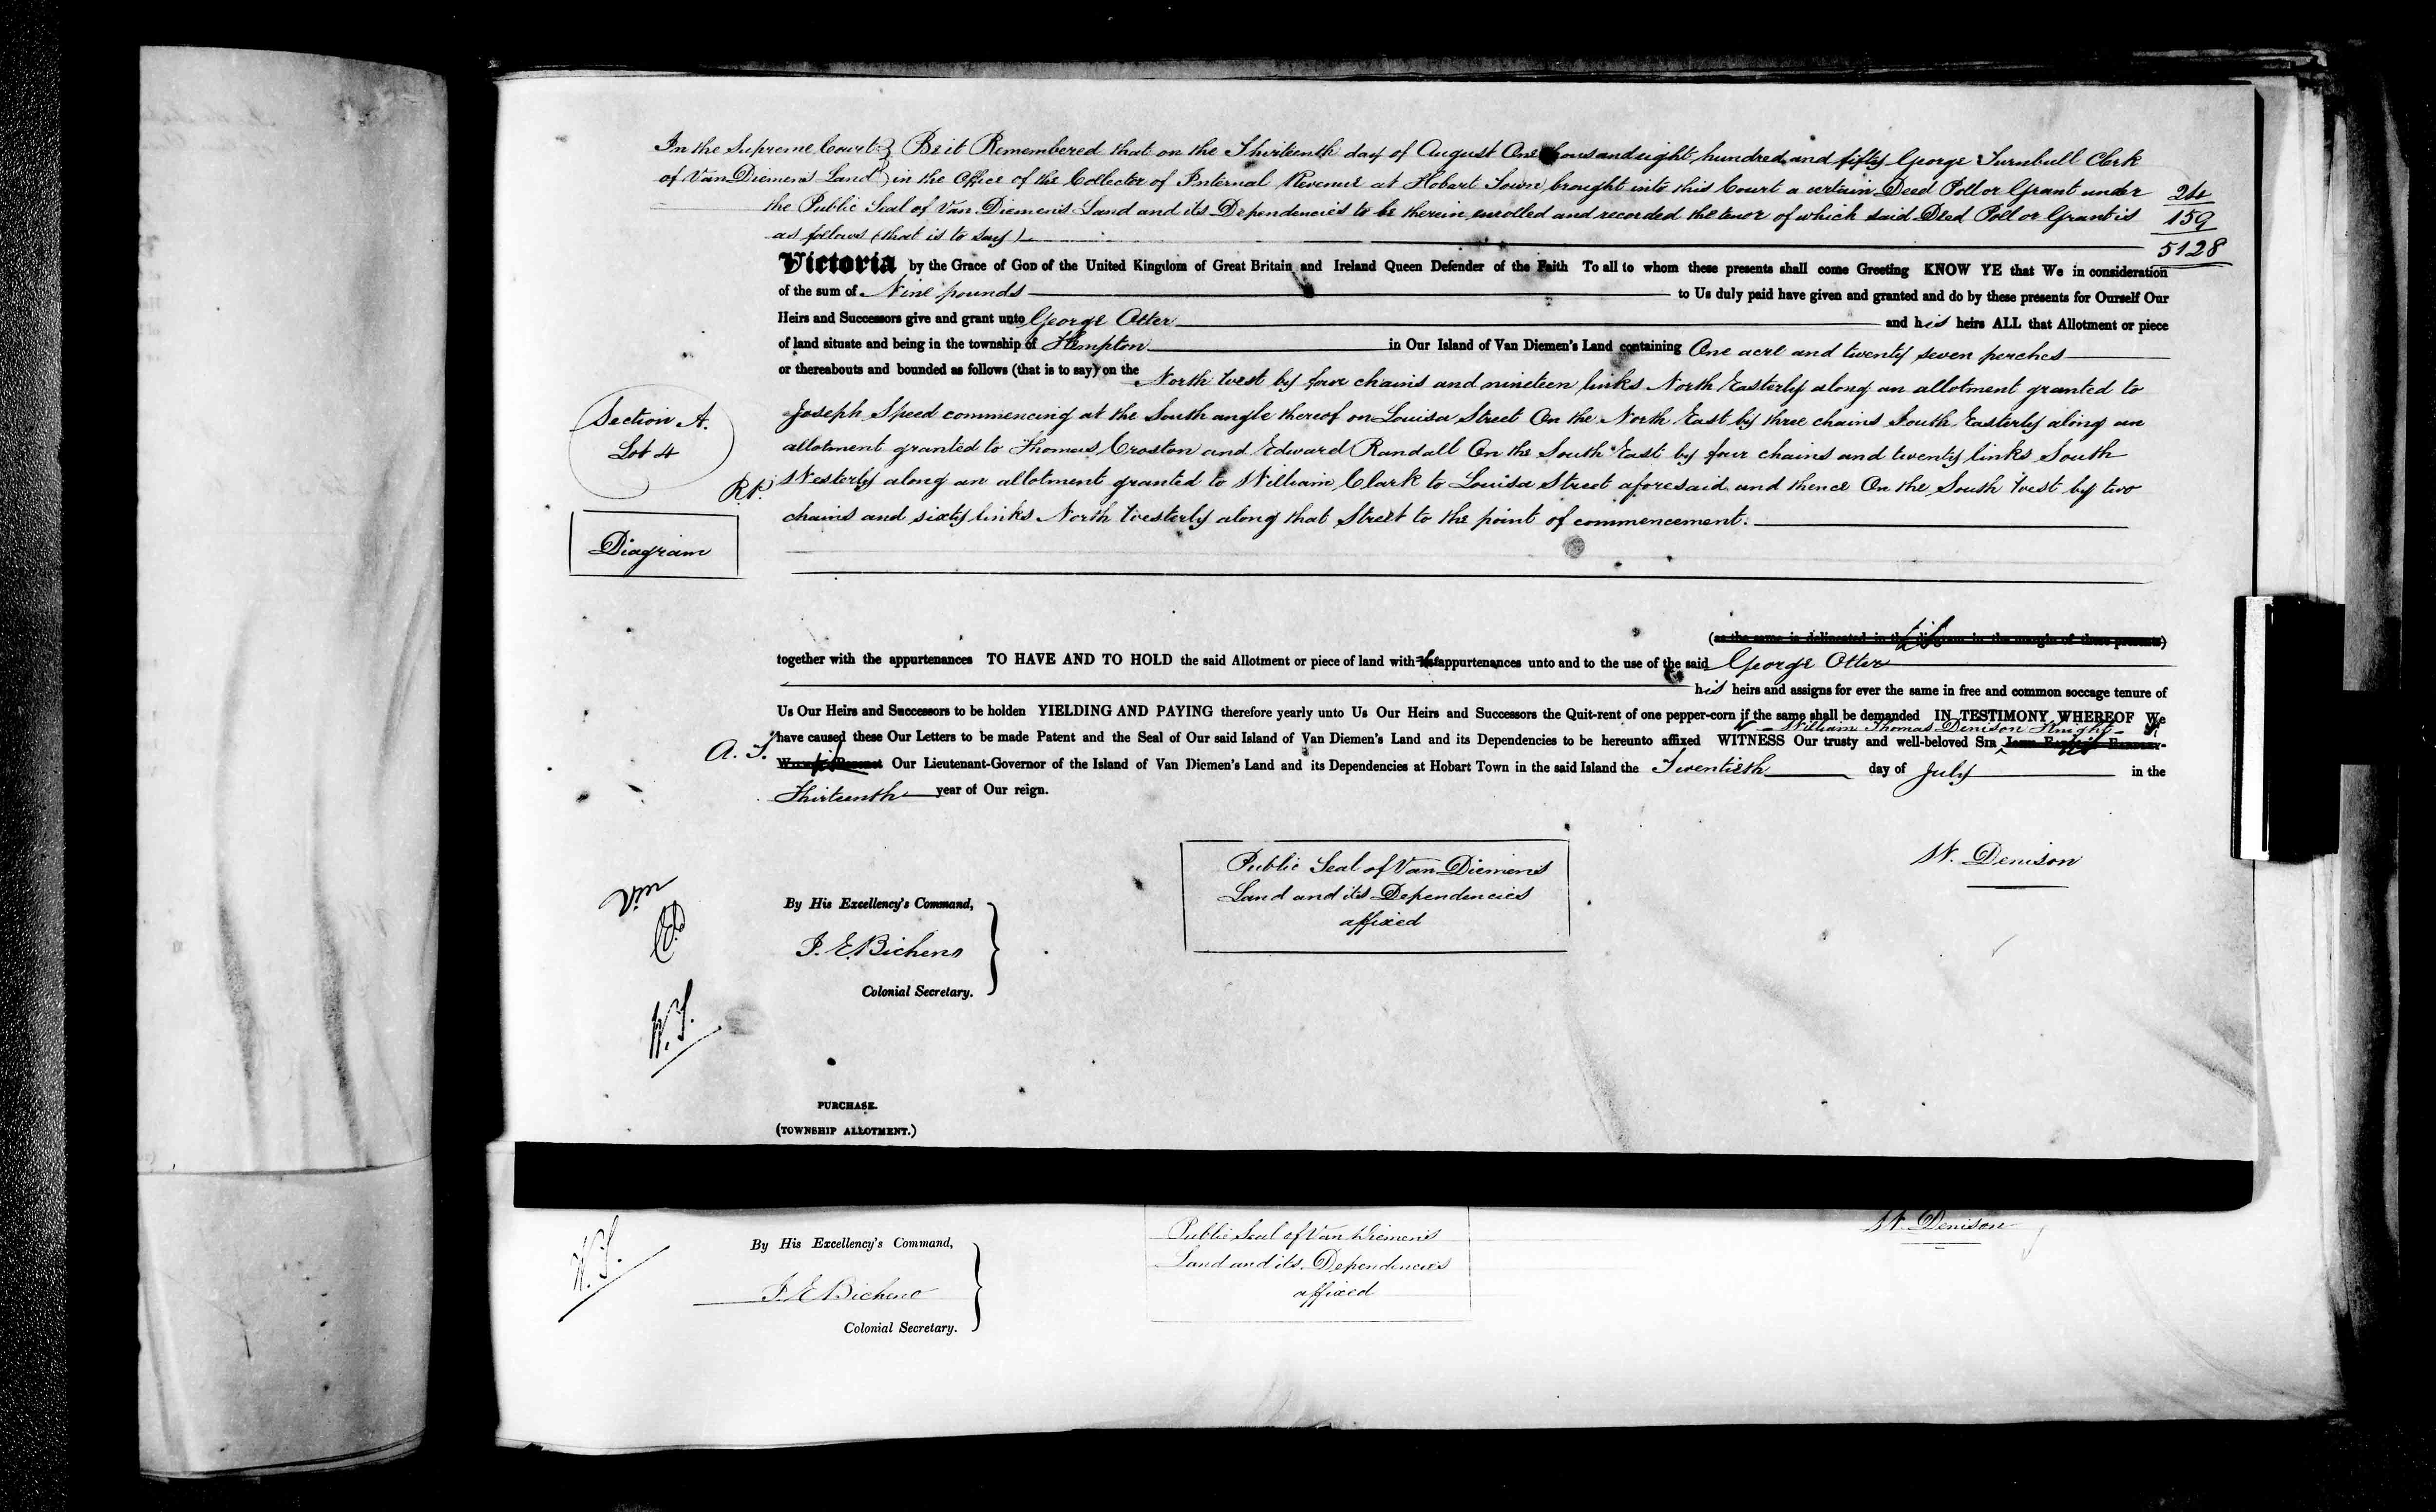 In the Supreme Court } Be it Remembered that on the Thirteenth day of August One thousand eight hundred and fifty George Turnbull Clerk
of Van Diemen's Land } in the Office of the Collector of Internal Revenue at Hobart Town brought into this Court a certain Deed Poll or Grant under
the Public Seal of Van Diemen's Land and its Dependencies to be therein enrolled and recorded the tenor of which said Deed Poll or Grant is
as follows (that is to say)
159
5128
Victoria by the Grace of God of the United Kingdom of Great Britain and Ireland Queen Defender of the Faith To all to whom these presents shall come Greeting KNOW YE that We in consideration
of the sum of Nine pounds to Us duly paid have given and granted and do by these presents for Ourself Our
Heirs and Successors give and grant unto George Otter and his heirs ALL that Allotment or piece
of land situate and being in the township of Kempton in Our Island of Van Diemen's Land containing One acre and twenty seven perches
or thereabouts and bounded as follows (that is to say) on the North West by four chains and nineteen links North Easterly along an allotment granted to
Joseph Speed commencing at the South angle thereof on Louisa Street On the North East by three chains South Easterly along an
allotment granted to Thomas Croston and Edward Randall On the South East by four chains and twenty links South
Westerly along an allotment granted to William Clark to Louisa Street aforesaid and thence On the South West by two
chains and sixty links North Westerly along that Street to the point of commencement.
Section A.
Lot 4
R.P.
Diagram
(as the same is delineated in the diagram in the margin of these presents)
together with the appurtenances TO HAVE AND TO HOLD the said Allotment or piece of land with appurtenances unto and to the use of the said George Otter
his heirs and assigns for ever the same in free and common soccage tenure of
Us Our Heirs and Successors to be holden YIELDING AND PAYING therefore yearly unto Us Our Heirs and Successors the Quit-rent of one pepper-corn if the same shall be demanded IN TESTIMONY WHEREOF We
William Thomas Denison Knight
have caused these Our Letters to be made Patent and the Seal of Our said Island of Van Diemen's Land and its Dependencies to be hereunto affixed WITNESS Our trusty and well-beloved Sir John Eardley Eardley-
A. T.
Wilmot Baronet Our Lieutenant-Governor of the Island of Van Diemen's Land and its Dependencies at Hobart Town in the said Island the Twentieth day of July in the
Thirteenth year of Our reign.
W. Denison
Public Seal of Van Diemen's
Land and its Dependencies
affixed
By His Excellency's Command,
J. E. Bicheno
Colonial Secretary.
W. S.
PURCHASE.
(TOWNSHIP ALLOTMENT.)
W. S.
By His Excellency's Command,
J. E. Bicheno
Colonial Secretary.
Public Seal of Van Diemen's
Land and its Dependencies
affixed
W. Denison